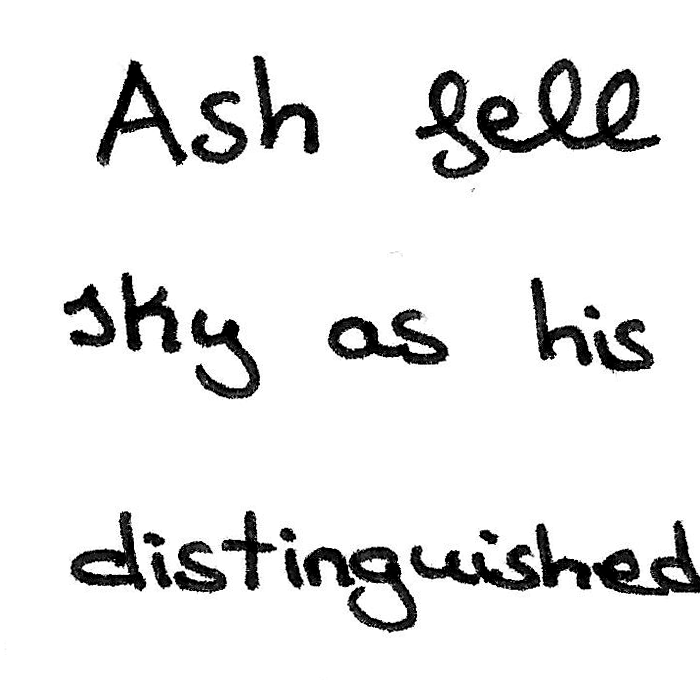 Ash fell
sky as his
distinguished